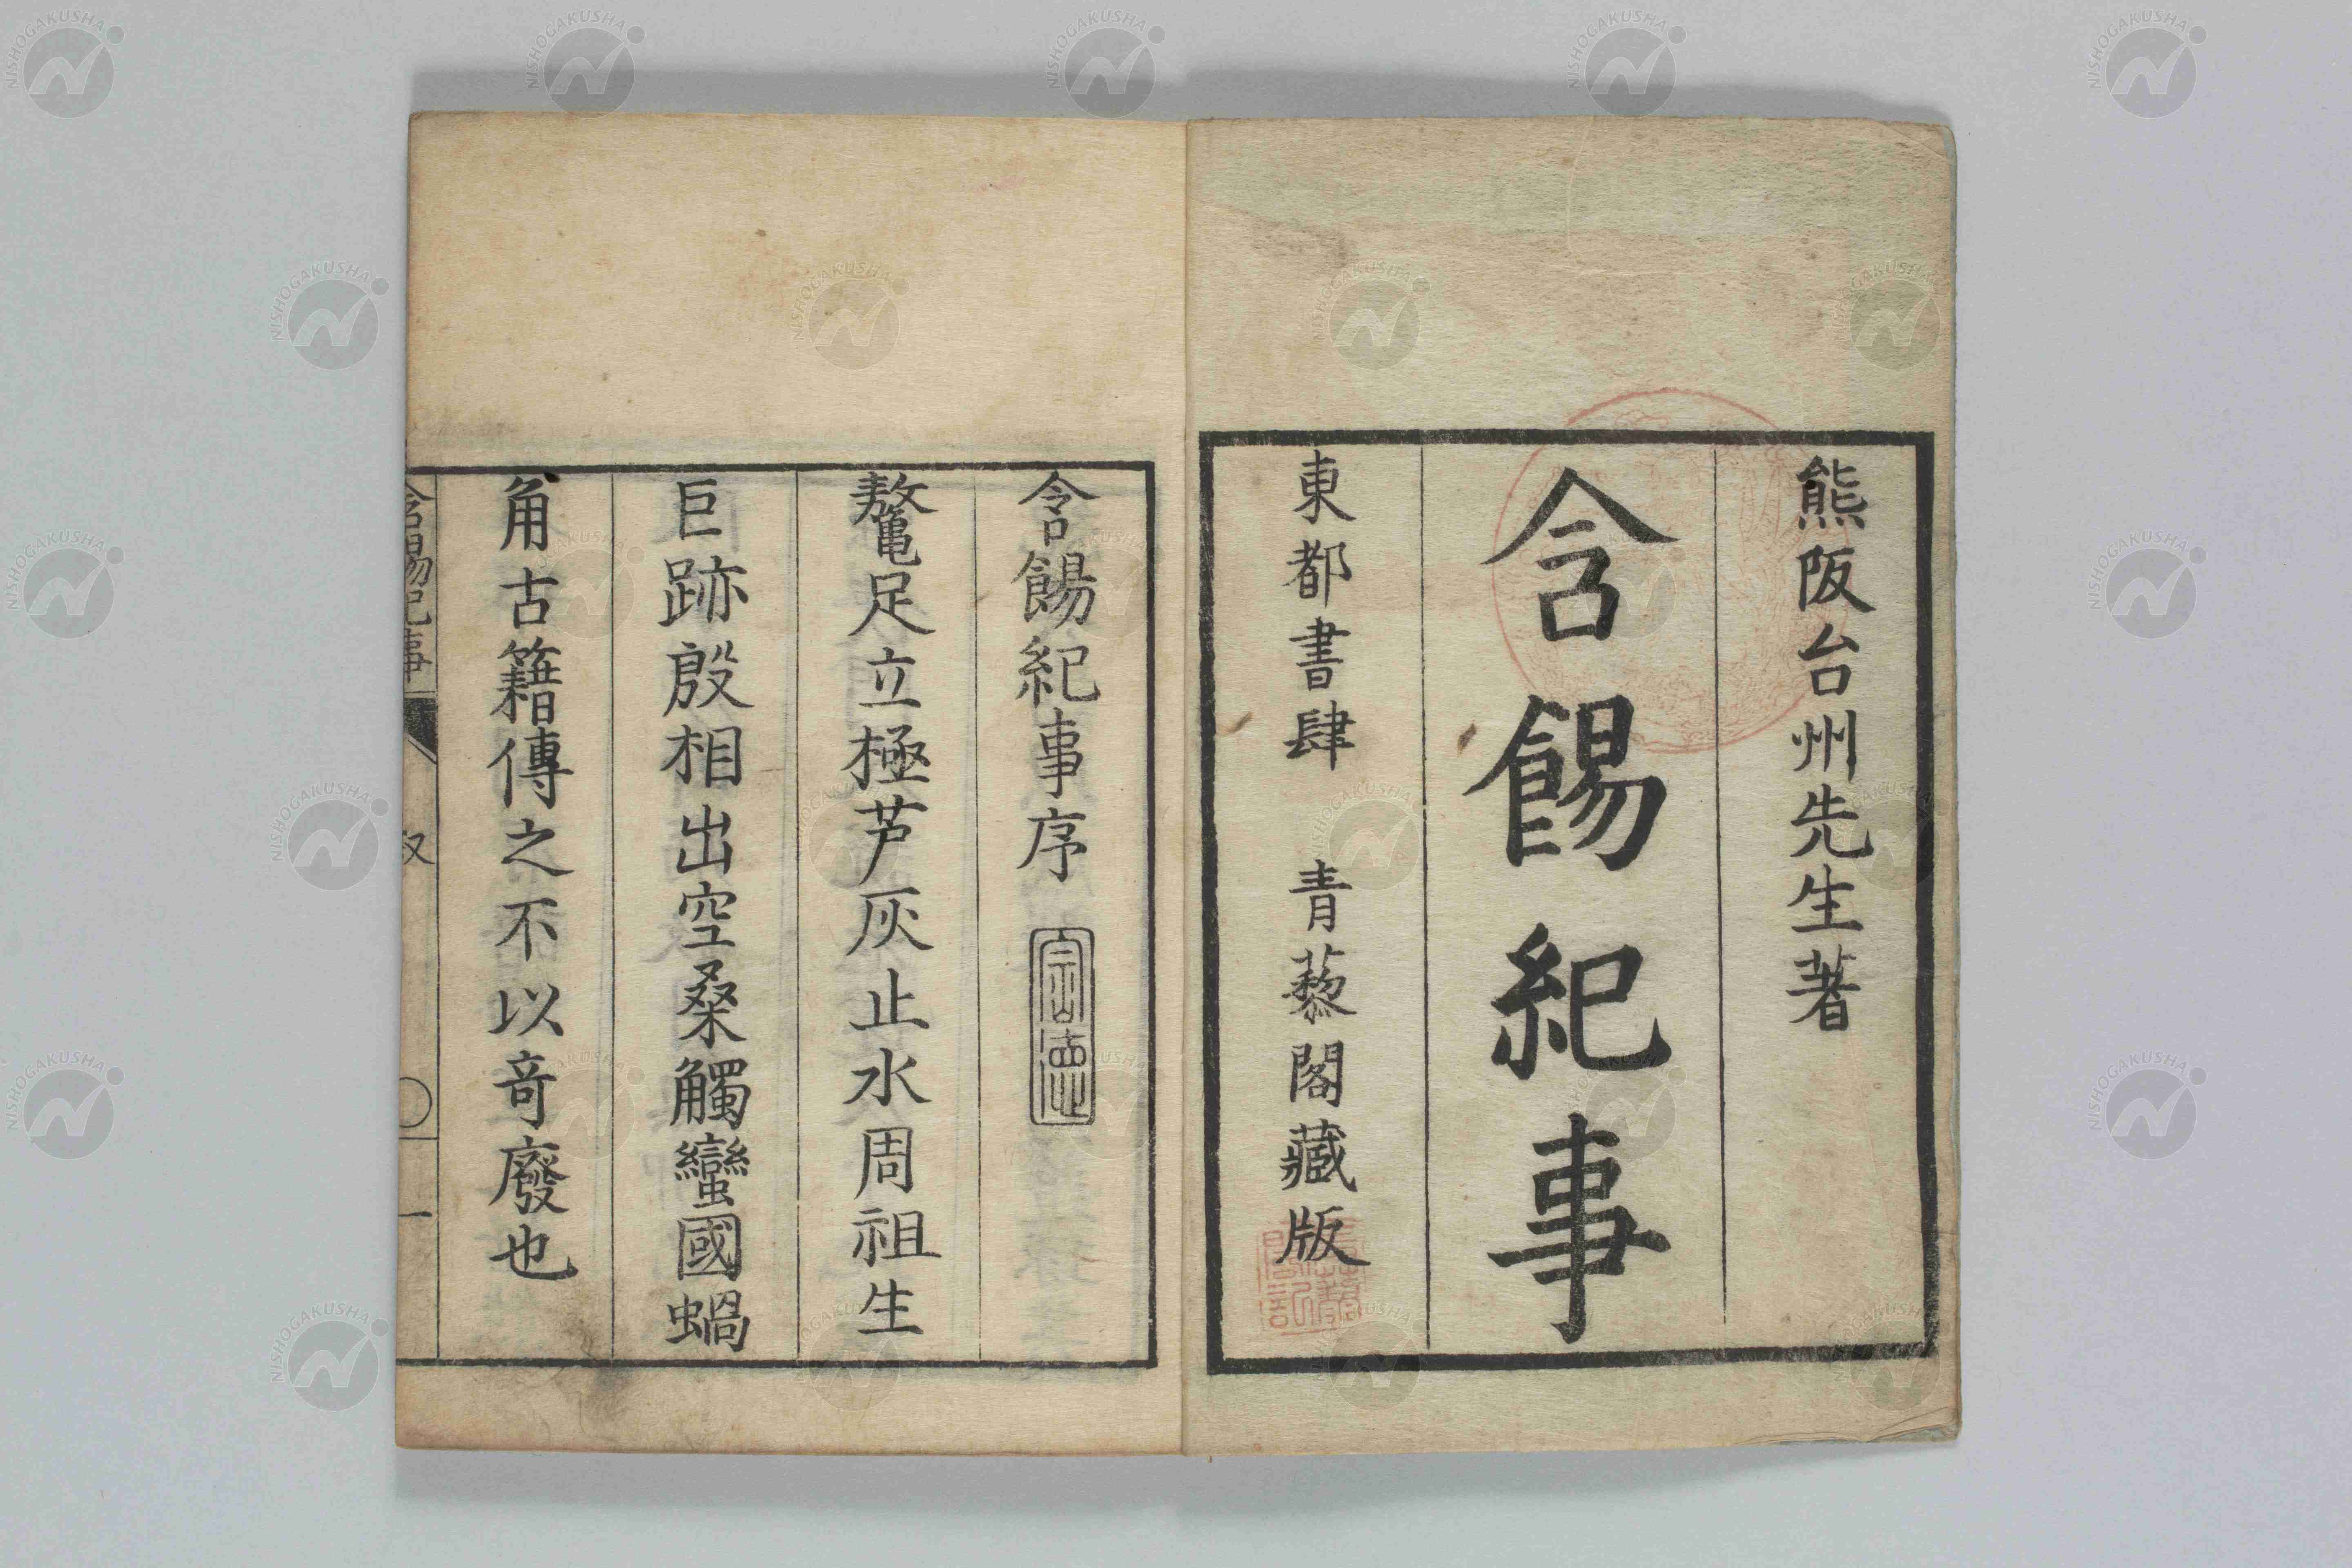 熊阪台州先生著
含餳紀事
東都書肆 青藜閣藏版
含餳紀事序
鼇足立極芦灰止水周祖生
巨跡殷相出空桑觸蠻國蝸
角古籍傳之不以奇廢也
含餳紀事 叙 一
NISHOGAKUSHA